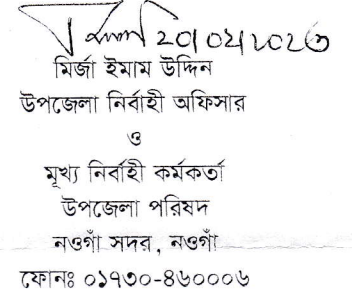 ২০।০২।২০২৩
মির্জা ইমাম উদ্দিন
উপজেলা নির্বাহী অফিসার
ও
মূখ্য নির্বাহী কর্মকর্তা
উপজেলা পরিষদ
নওগাঁ সদর, নওগাঁ
ফোনঃ ০১৭৩০-৪৬০০০৬